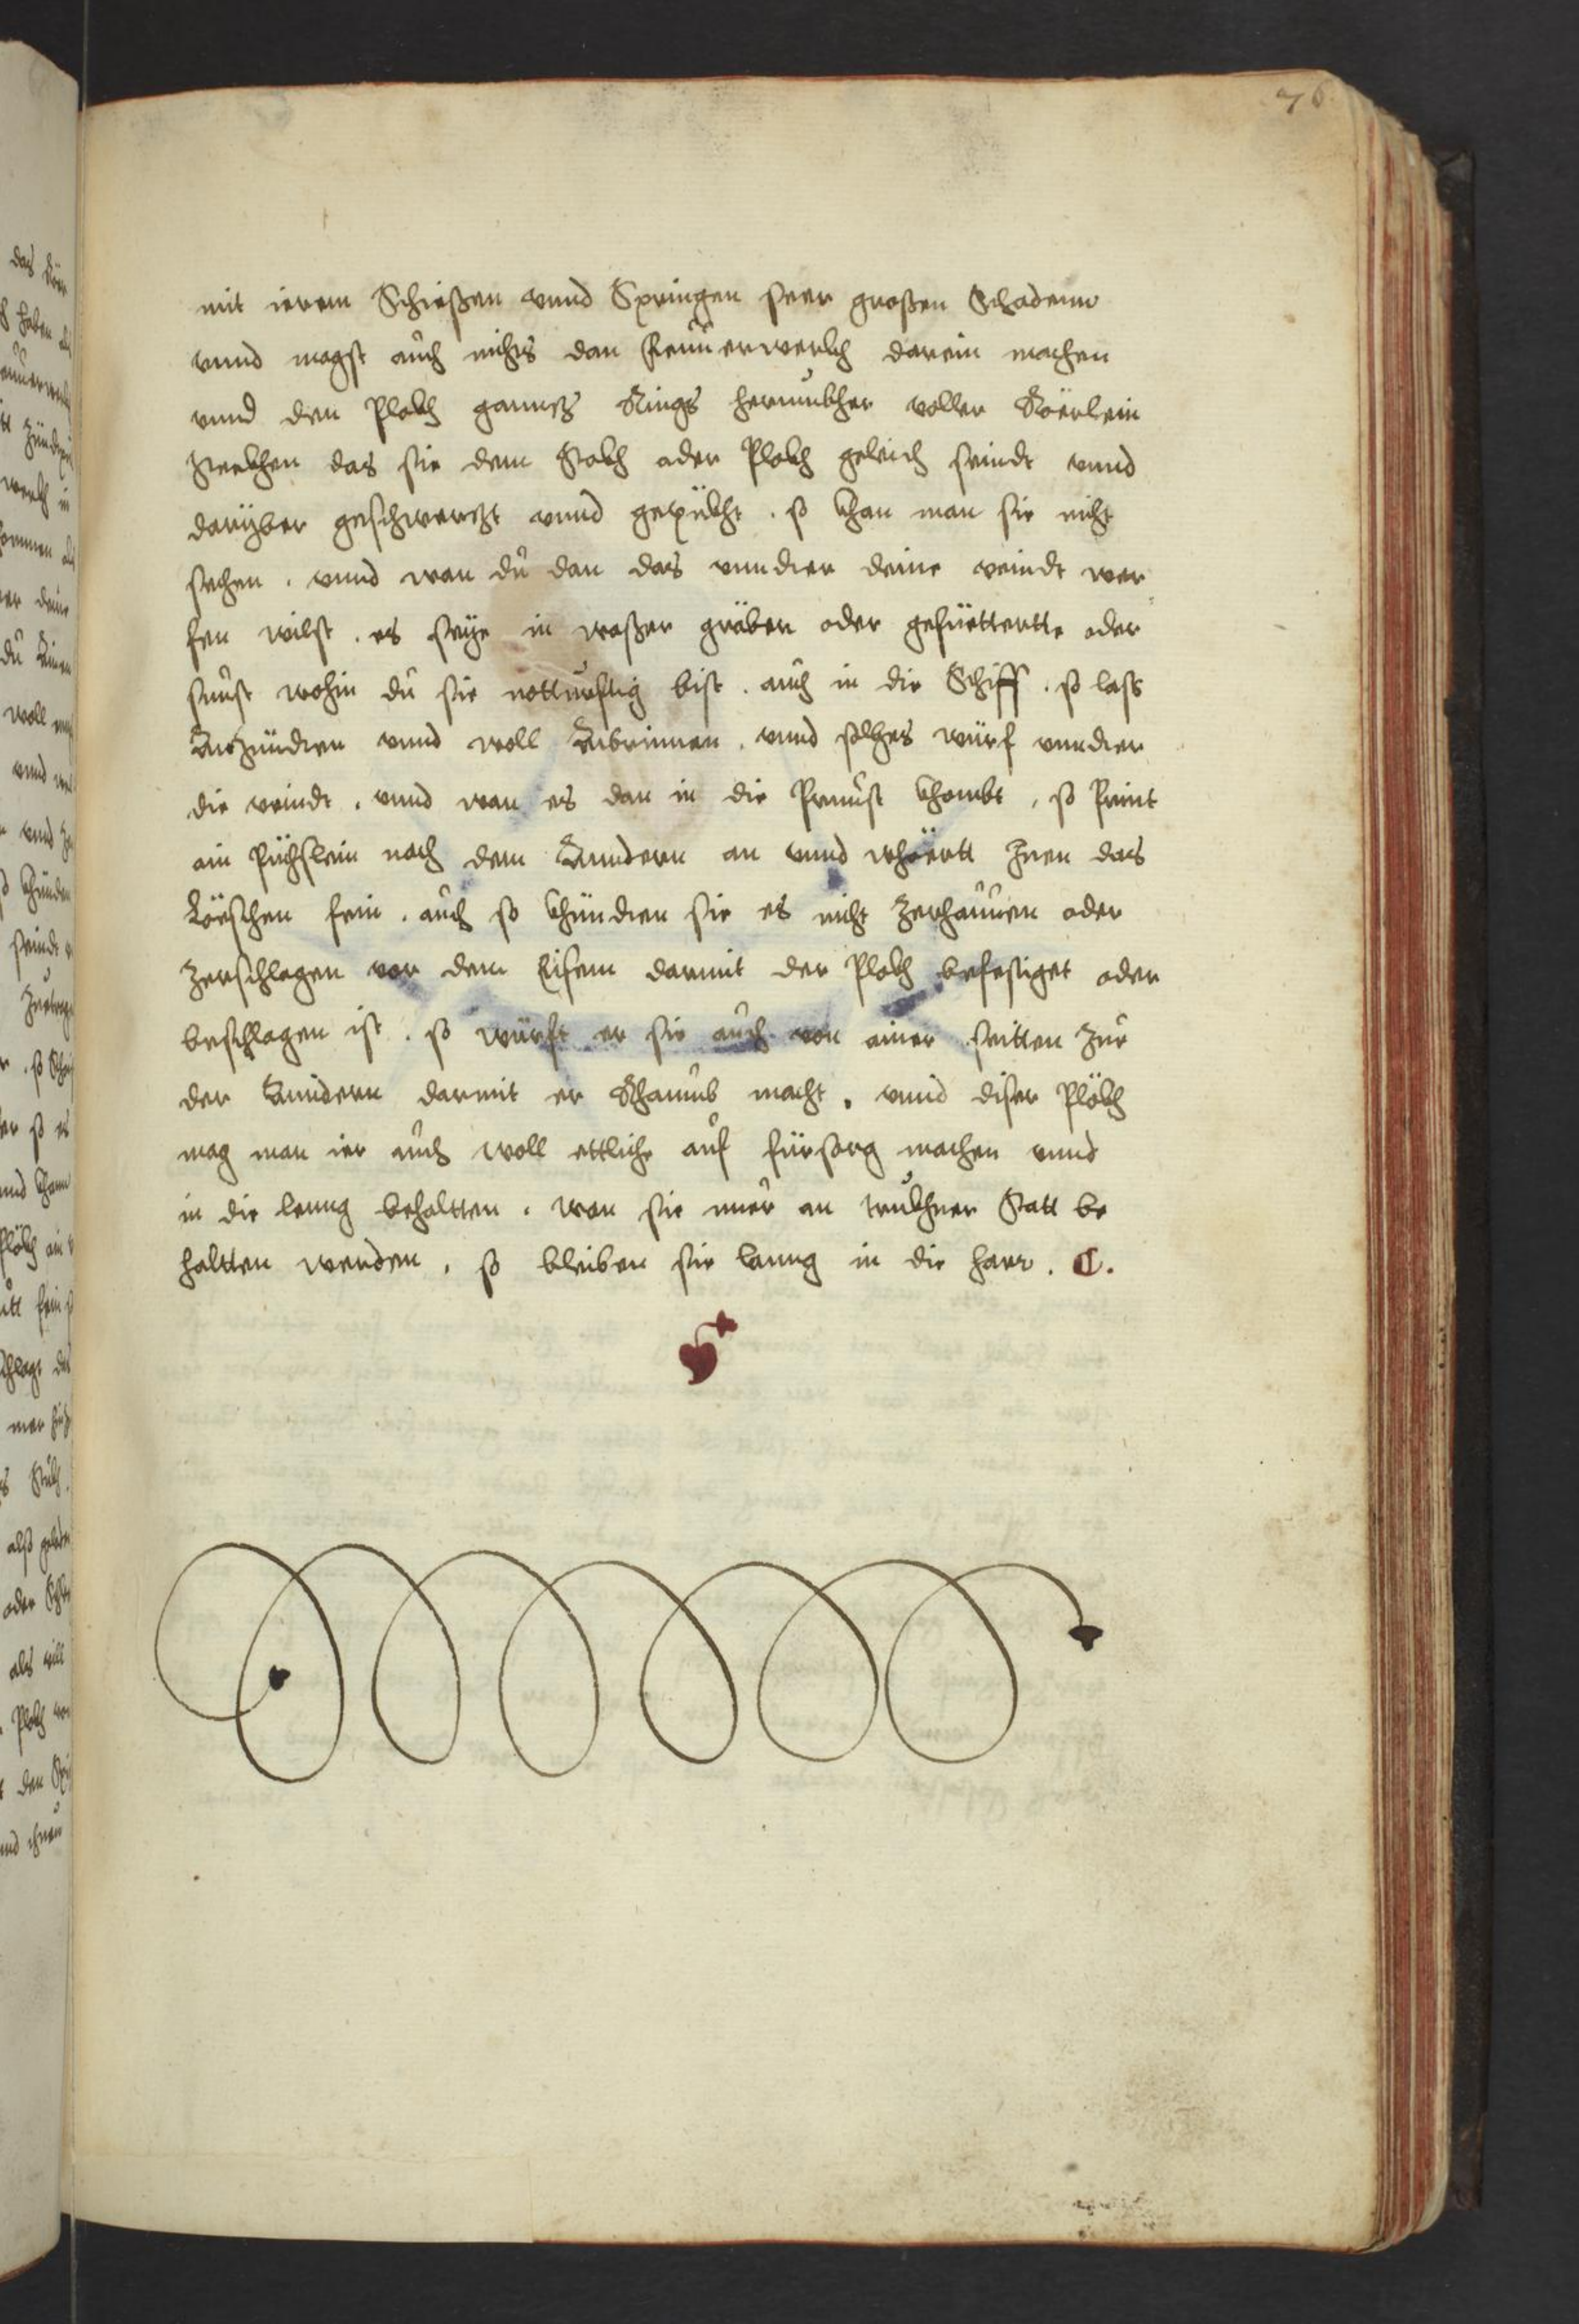 76
mit ierem Schießen vnnd Springen seer großen Schadenn
vnnd magst auch nichts dan Feüüerwerkh darein machen
vnnd den Plokh gannz Rings herumbher voller Röerlein
Stekhen das sie dem Stokh oder Plokh geleich seindt vnnd
darÿber geschwerzt vnnd gepükht . so khan man sie nicht
sechen . vnnd wan du dan das vnndter deine veindt wer
fen wilst . es seÿe in waßer gräben oder gefüettertte oder
sunst wohin du sie notturftig bist . auch in die Schiff . so lass
Anzündten vnnd woll Anbrinnen . vnnd solches würf vnndter
die veindt . vnnd wan es dan in die Prunst khombt , so Print
ain Püchslein nach dem Anndern an vnnd whöertt Inen das
Löeschen fein . auch so khündten sie es nicht zerhauuen oder
zerschlagen vor dem Eisenn darmit der Plokh befestiget oder
beschlagen ist . so würft er sie auch von ainer seitten zur
der Anndern darmit er Rhaumb macht . vnnd diser Plökh
mag man ier auch woll ettliche auf fürsorg machen vnnd
in die leng behaltten . wan sie nuer an trukhner Statt be
haltten werden , so bleiben sie lanng in die harr . C.